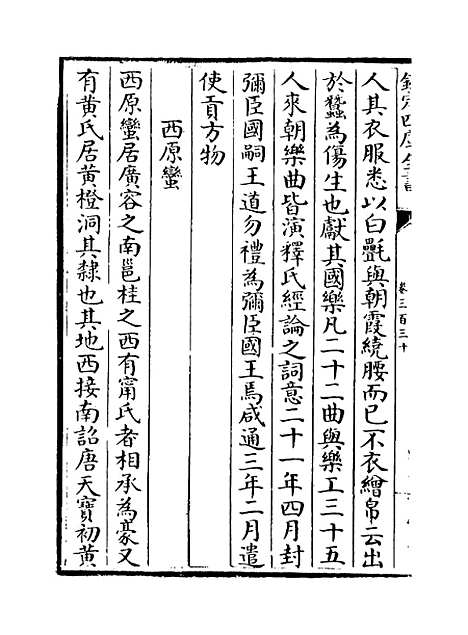 欽定四庫全書
卷三百三十
人其衣服悉以白㲲與朝霞繞腰而已不衣繒帛云出
於蠶為傷生也獻其國樂凡二十二曲與樂工三十五
人來朝樂曲皆演釋氏經論之詞意二十一年四月封
彌臣國嗣王道勿禮為彌臣國王焉咸通三年二月遣
使貢方物
西原蠻
西原蠻居廣容之南邕桂之西有甯氏者相承為豪又
有黄氏居黄橙洞其隸也其地西接南詔唐天寶初黄